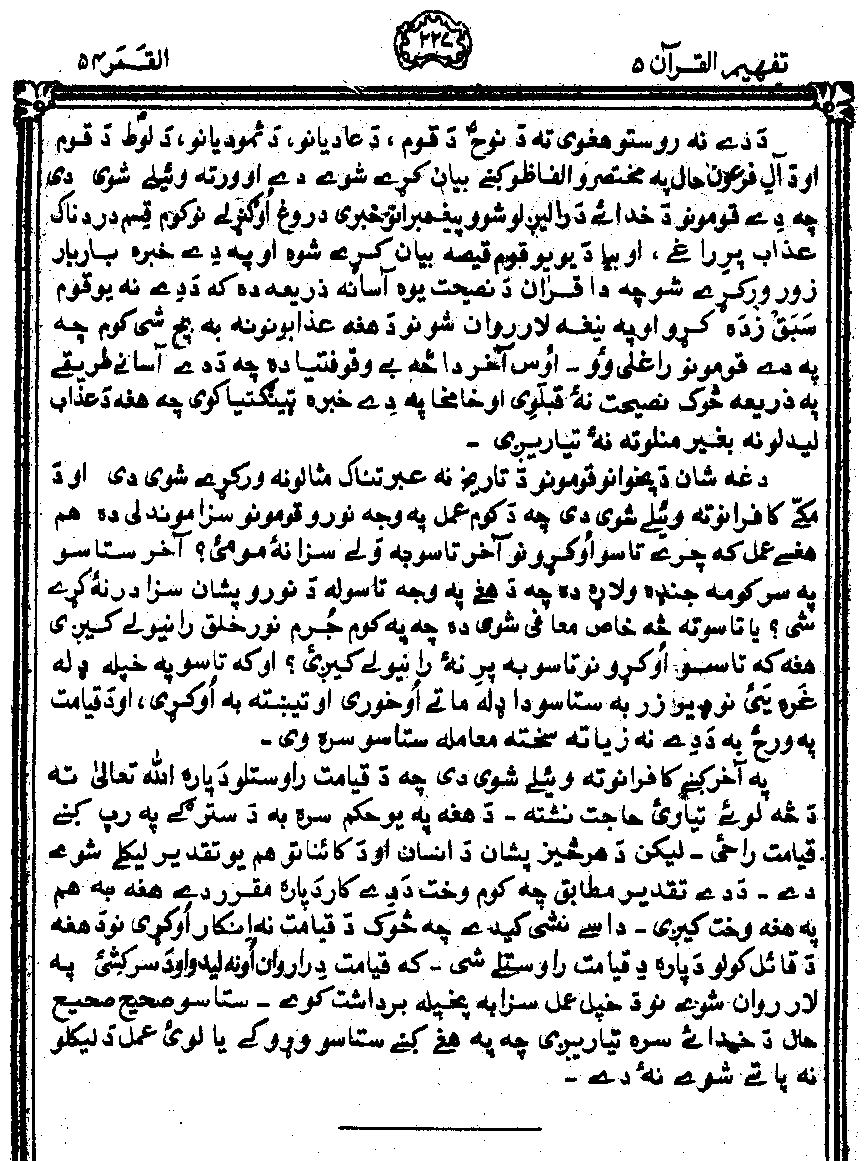 تفهیم القرآن ۵
۲۲۷
القمر ۵۴
دَ دے نه روستو هغوی ته دَ نوحؑ دَ قوم ، دَ عادیانو، دَ ثمودیانو، دَ لوطؑ دَ قوم
او دَ آلِ فرعون حال په مختصرو الفاظو کښے بیان کړے شوے دے او ورته وئیلے شوی دی
چه دے قومونو دَ خدائے دَ رالیږلو شوو پیغمبرانو خبری دروغ اوګنړلے نو کوم قِسم دردناک
عذاب پرے راغے ، او بیا دَ یو یو قوم قیصه بیان کړے شوه او په دے خبره باربار
زور ورکړے شو چه دا قرآن دَ نصیحت یوه آسانه ذریعه ده که دَ دے نه یو قوم
سَبَق زده کړو او په نیغه لار روان شو نو دَ هغه عذابونو نه به بچ شی کوم چه
په دے قومونو راغلی وُو ۔ اوس آخر دا څه بے وقوفتیا ده چه دَ دے آسانے طریقے
په ذریعه څوک نصیحت نهٔ قبلوی او خامخا په دے خبره ټینګتیا کوی چه هغه دَ عذاب
لیدلو نه بغیر منلو ته نهٔ تیاریږی ۔
دغه شان دَ پخوانو قومونو دَ تاریخ نه عبرتناک مثالونه ورکړے شوی دی او دَ
مکّے کافرانو ته وئیلے شوی دی چه دَ کوم عمل په وجه نورو قومونو سزا موندلی ده هم
هغے عمل که چرے تاسو اوکړو نو آخر تاسو به وَلے سزا نهٔ مومئ؟ آخر ستاسو
په سر کومه جنډه ولاړه ده چه دَ هغے په وجه تاسو له دَ نورو پشان سزا در نهٔ کړے
شی؟ یا تاسو ته څه خاص معافی شوی ده چه په کوم جُرم نور خلق رانیولے کیږی
هغه که تاسو اوکړو نو تاسو به پرِ نهٔ رانیولے کیږئ؟ او که تاسو په خپله ډله
غَره یَئ نو ډیر زر به ستاسو دا ډله ماتے اوخوری او تیښته به اوکړی، او دَ قیامت
په ورځ به دَ دے نه زیاته سخته معامله ستاسو سره وی ۔
په آخر کښے کافرانو ته وئیلے شوی دی چه دَ قیامت راوستلو دَپاره الله تعالیٰ ته
دَ څه لوئے تیاریٔ حاجت نشته ۔ دَ هغه په یو حکم سره به دَ سترګے په رپ کښے
قیامت راځی ۔ لیکن دَ هر څیز پشان دَ انسان او دَ کائناتو هم یو تقدیر لیکلے شوے
دے ۔ دَ دے تقدیر مطابق چه کوم وخت دَ دے کار دَپاره مقرر دے هغه به هم
په هغه وخت کیږی ۔ داسے نشی کیدے چه څوک دَ قیامت نه اِنکار اوکړی نو دَ هغه
دَ قائل کولو دَپاره دِ قیامت راوستلے شی ۔ که قیامت دِ راروان اونه لیدو او دَ سرکشیٔ په
لار روان شوے نو دَ خپل عمل سزا به پخپله برداشت کوے ۔ ستاسو صحیح صحیح
حال دَ خدائے سره تیاریږی چه په هغے کښے ستاسو وړوکے یا لوئ عمل دَ لیکلو
نه پاتے شوے نهٔ دے ۔